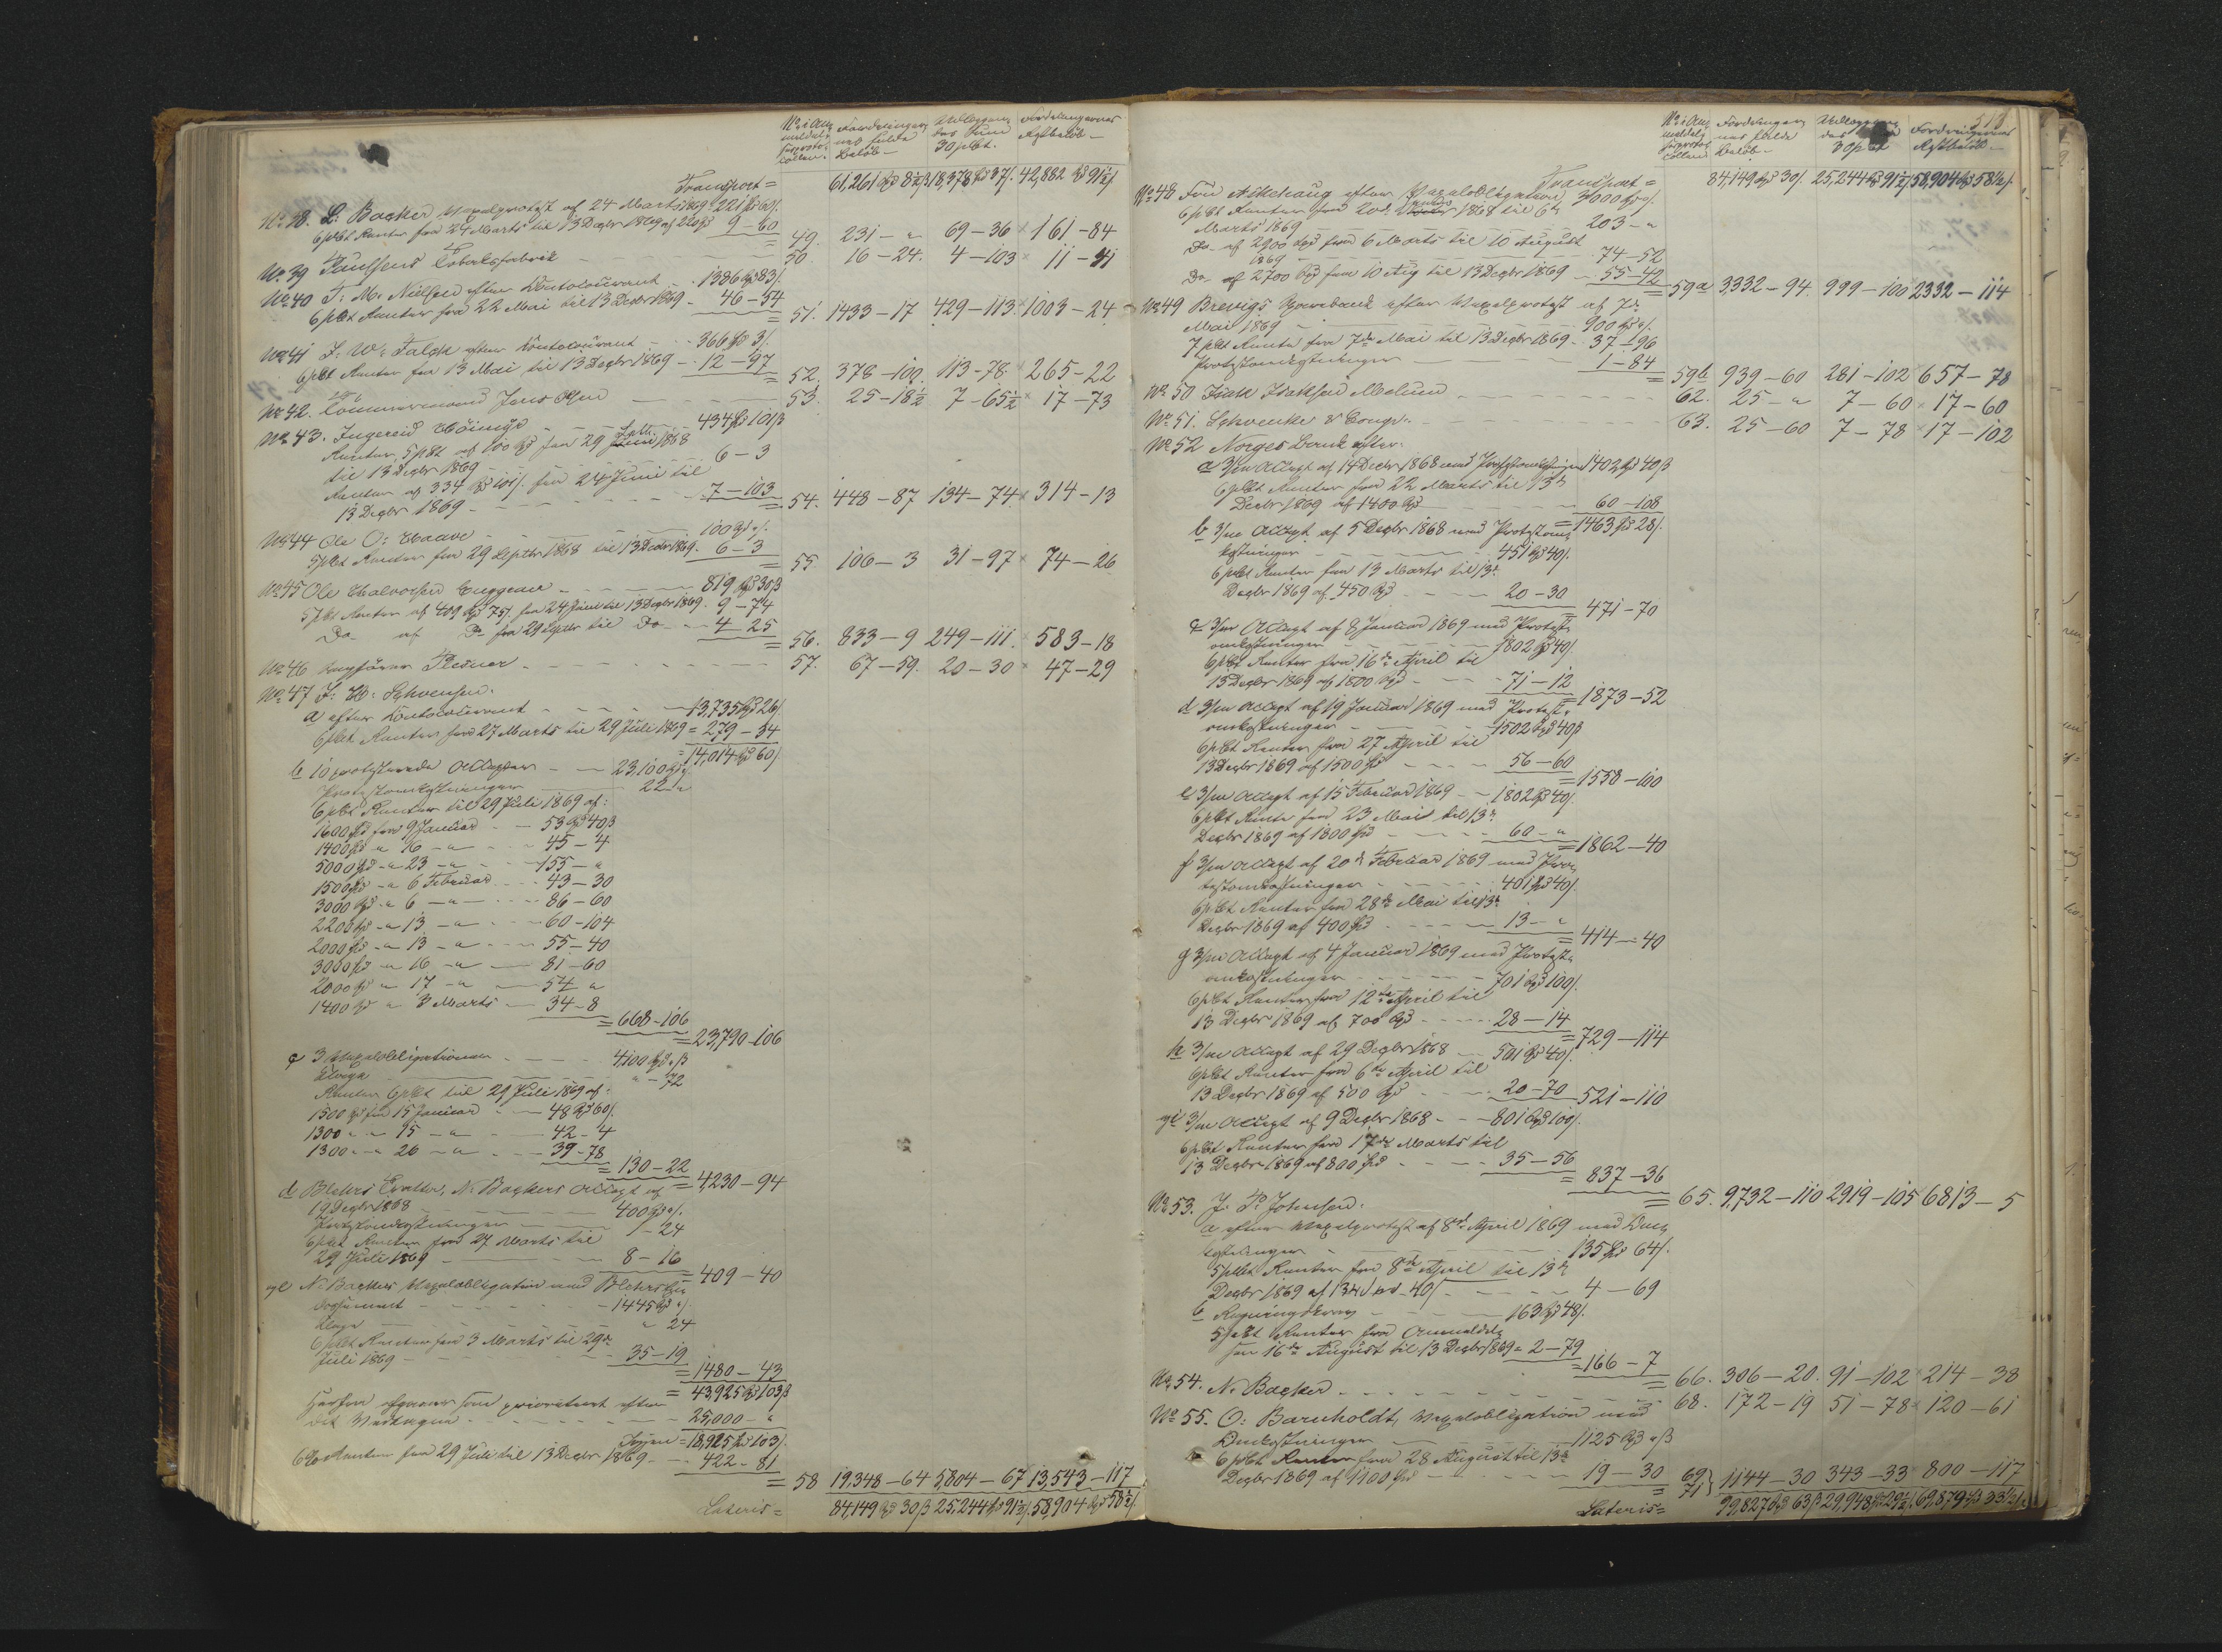 No i An- Fordringer- Udlæggen- Fordringernes
nes fulde des Sum Restbeløb
Beløb 30 pCt.
Transport = 61,261 Spd 8½ß 18,378 Spd 37ß 42,882 Spd 91½ß
No 38. L. Backer, Vexelprotest af 24 Marts 1869 221 Spd 60ß
6 pCt Renter fra 24 Marts til 13 Decbr 1869 af 220 Spd 9-60
= 49. 231 - " 69-36 161-84
No 39 Paulsens Tobaksfabrik 50. 16-24. 4-103 11-41
No 40 T. M. Nielsen efter Contocourant 1386 Spd 83ß
6 pCt Renter fra 22 Mai til 13 Decbr 1869 - 46-54
= 51. 1433-17 429-113 1003-24
No 41 J. W. Falck efter Contocourant 366 Spd 3ß
6 pCt Renter fra 13 Mai til 13 Decbr 1869 - 12-97
= 52. 378-100. 113-78 265-22
No 42. Tømmermand Jens Olsen 53. 25-18½ 7-65½ 17-73
No 43. Ingereid 434 Spd 101ß
Renter 5 pCt af 100 Spd fra 29 Septbr 1868
til 13 Decbr 1869 6-3
Renter af 334 Spd 101ß fra 24 Juni til
13 Decbr 1869 7-103
= 54. 448-87 134-74 314-13
No 44 Ole O. Haave 100 Spd "ß
5 pCt Renter fra 29 Septbr 1868 til 13 Decbr 1869. 6-3
= 55 106-3 31-97 74-26
No 45 Ole Halvorsen 819 Spd 30ß
5 pCt Renter af 409 Spd 75ß fra 24 Juni til 13 Decbr 1869. 9-74
Do af Do fra 29 Septbr til Do 4-25
= 56. 833-9 249-111. 583-18
No 46 57. 67-59. 20-30 47-29
No 47 J. H. Schvensen.
a efter Contocourant 13,735 Spd 26ß
6 pCt Renter fra 27 Marts til 29 Juli 1869 = 279-34
= 14,014 Spd 60ß
b 10 protesterede Accepter 23,100 Spd "
Protestomkostninger 22 "
6 pCt Renter til 29 Juli 1869 af:
1600 Spd fra 9 Januar 53 Spd 40ß
1400 Spd " 16 - " 45-4
5000 Spd - " 23 - " 155 - "
1500 Spd - " 6 Februar 43-30
3000 Spd - " 6 - " 86-60
2200 Spd - " 13 - " 60-104
2000 Spd - " 13 - " 55-40
3000 Spd - " 16 - " 81-60
2000 Spd " 17 - " 54 "
1400 Spd " 3 Marts 34-8
= 668-106
= 23,790-106
c 3 Vexelobligationer 4100 Spd "ß
Klage " - 72
Renter 6 pCt til 29 Juli 1869 af:
1500 Spd fra 15 Januar 48 Spd 60ß
1300 " " 15 - " 42-4
1300 - " 26 - " 39-78
= 130-22
= 4,230-94
d N. Backers Accept af
19 Decbr 1868 400 Spd "ß
Protestomkostninger 1-24
6 pCt Renter fra 27 Marts til
29 Juli 1869 8-16
= 409-40
e N. Backers Vexelobligation med
1445 Spd "ß
Klage " 24
6 pCt Renter fra 3 Marts til 29de
Juli 1869 35-19
= 1480-43
= 43,925 Spd 103ß
Herfra afgaaer som prioriteret efter
25,000 - "
= 18,925 Spd 103ß
6 % Renter fra 29 Juli til 13 Decbr 1869 422-81
= 58 19,348-64 5,804-67 13,543-117
Lateris = 84,149 Spd 30ß 25,244 Spd 91½ß 58,904 Spd 58½ß
No i An- Fordringer- Udlæggen- Fordringernes
nes fulde des Restbeløb
Beløb 30 pCt
Transport = 84,149 Spd 30ß 25,244 Spd 91½ß 58,904 Spd 58½ß
No 48 Fru efter Vexelobligation 3000 Spd "ß
6 pCt Renter fra 20de 1868 til 6te
Marts 1869 203 - "
Do af 2900 Spd fra 6 Marts til 10 August
1869 74-52
Do af 2700 Spd fra 10 Aug til 13 Decbr 1869 55-42
= 59a 3332-94. 999-100 2332-114
No 49 Brevigs Sparebank efter Vexelprotest af 7de
Mai 1869 900 Spd "ß
7 pCt Rente fra 7de Mai til 13 Decbr 1869 37-96
Protestomkostninger 1-84
= 59b 939-60 281-102 657-78
No 50 Isak Isaksen Melum 62. 25 - " 7-60 17-60
No 51. Schvencke & Comp. 63. 25-60 7-78 17-102
No 52 Norges Bank efter:
a 3/m Accept af 14 Decbr 1868 med Protestomkostninger 1402 Spd 40ß
6 pCt Renter fra 22 Marts til 13de
Decbr 1869 af 1400 Spd 60-108
= 1463 Spd 28ß
b 3/m Accept af 5 Decbr 1868 med Protestom-
kostninger 451 Spd 40ß
6 pCt Renter fra 13 Marts til 13de
Decbr 1869 af 450 Spd 20-30
= 471-70
c 3/m Accept af 8 Januar 1869 med Protest-
omkostninger 1802 Spd 40ß
6 pCt Renter fra 16de April til
13 Decbr 1869 af 1800 Spd 71-12
= 1873-52
d 3/m Accept af 19 Januar 1869 med Protest-
omkostninger 1502 Spd 40ß
6 pCt Renter fra 27 April til
13 Decbr 1869 af 1500 Spd 56-60
= 1558-100
e 3/m Accept af 15 Februar 1869 1802 Spd 40ß
6 pCt Rente fra 23 Mai til 13de
Decbr 1869 af 1800 Spd 60 - "
= 1862-40
f 3/m Accept af 20de Februar 1869 med Pro-
testomkostninger 401 Spd 40ß
6 pCt Renter fra 28de Mai til 13de
Decbr 1869 af 400 Spd 13 - "
= 414-40
g 3/m Accept af 4 Januar 1869 med Protest-
omkostninger 701 Spd 100ß
6 pCt Renter fra 12te April til
13 Decbr 1869 af 700 Spd 28-14
= 729-114
h 3/m Accept af 29 Decbr 1868 501 Spd 40ß
6 pCt Renter fra 6te April til
13 Decbr 1869 af 500 Spd 20-70
521-110
i 3/m Accept af 9 Decbr 1868 801 Spd 100ß
6 pCt Renter fra 17de Marts til
13 Decbr 1869 af 800 Spd 35-56
= 837-36
= 65. 9,732-110 2919-105 6813-5
No 53. J. P. Johnsen.
a efter Vexelprotest af 8de April 1869 med Om-
kostninger 135 Spd 64ß
5 pCt Renter fra 8de April til 13de
Decbr 1869 af 134 40ß 4-69
b Regningskrav 163 Spd 48ß
5 pCt Renter fra Anmeldel-
sen 16de August til 13 Decbr 1869 = 2-79
= 166-7
= 66. 306-20. 91-102 214-38
No 54. N. Backer 68. 172-19 51-78 120-61
No 55. O. Barnholdt, Vexelobligation med
Omkostninger 1125 Spd "ß
6 pCt Renter fra 28 August til 13de
Decbr 1869 af 1100 Spd 19-30
= 69 71} 1144-30 343-33 800-117
Lateris = 99,827 Spd 63ß 29,948 Spd 29½ß 69,879 Spd 33½ß